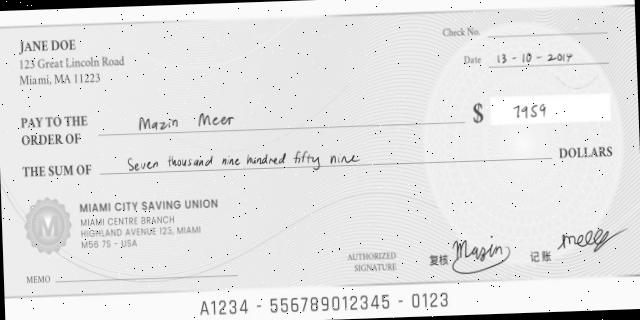 JANE DOE
123 Great Lincoln Road
Miami, MA 11223
Check No.
Date 13-10-2014
PAY TO THE
ORDER OF Mazin Meer
$ 7959
THE SUM OF Seven thousand nine hundred fifty nine DOLLARS
MIAMI CITY SAVING UNION
MIAMI CENTRE BRANCH
HIGHLAND AVENUE 123, MIAMI
M56 7S - USA
MEMO
AUTHORIZED
SIGNATURE
复核 Mazin 记账
A1234 - 556789012345 - 0123